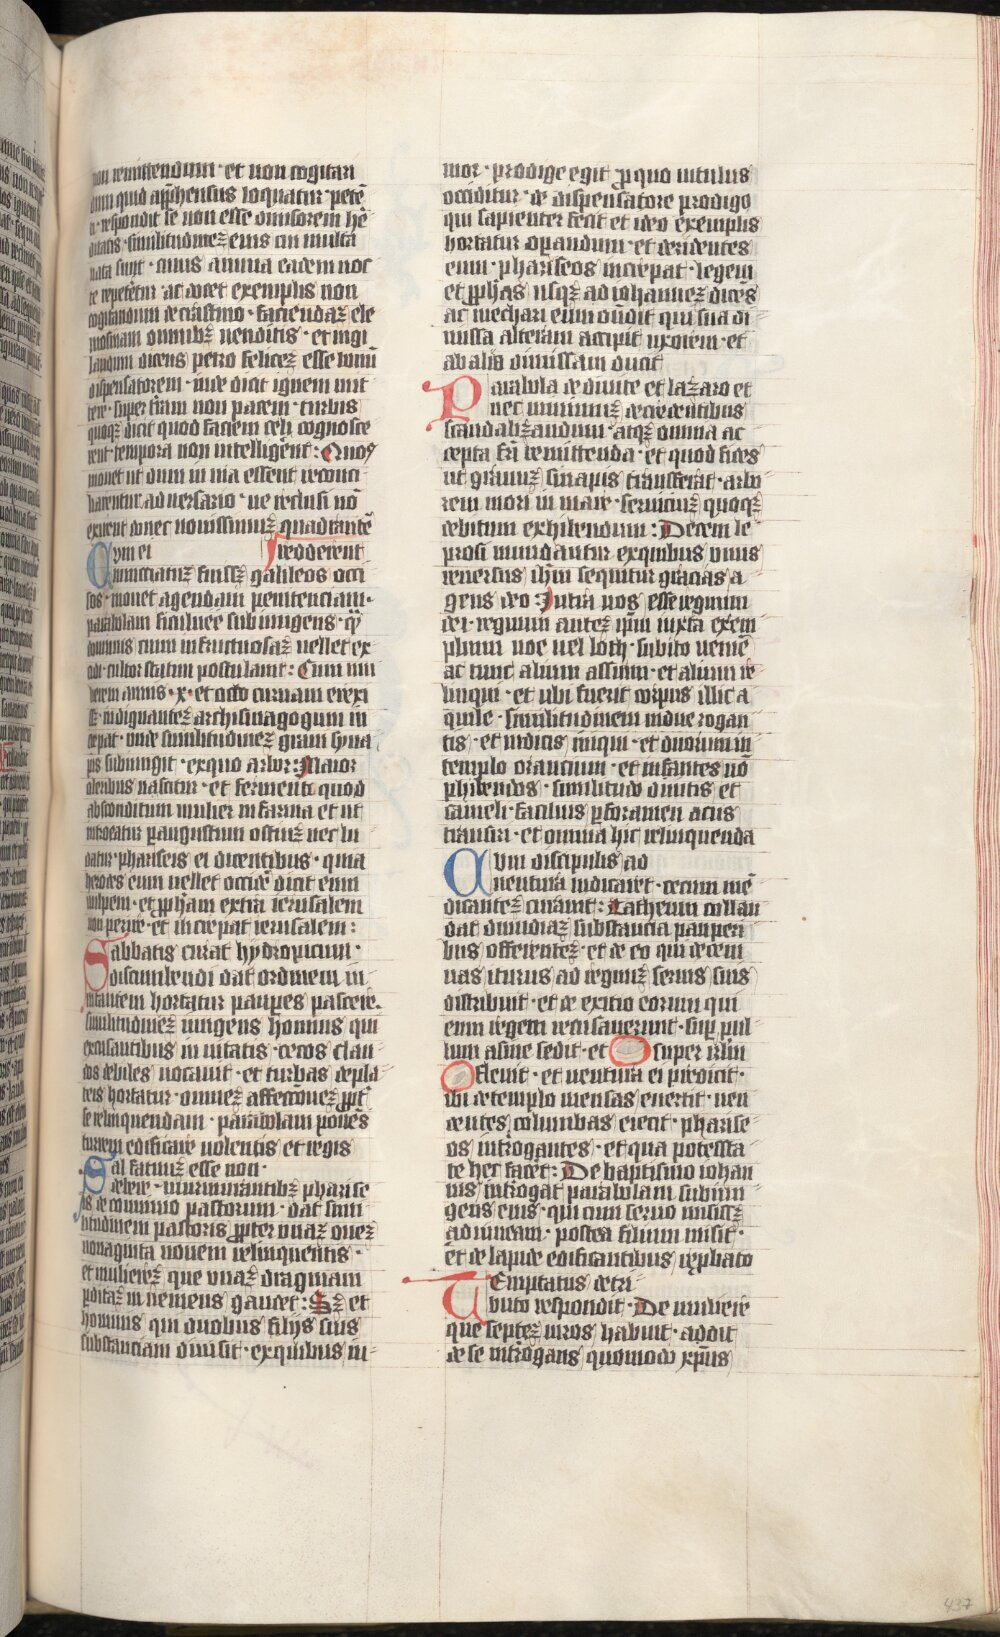 non remittendum · et non cogitari
cum quid app̄hensus loquatur · petē
ti · respondit se non esse diuisorem he
ditatis · similitudinēz eius cui multa
nata sunt · cuius anima eadem noc
te repetetur · ac docet exemplis non
cogitandum de crastino · faciendaz ele
mosinam omnibz uenditis · et uigi
landum dicens petro felicez esse bonū
dispensatorem · inde dicit ignem mit
tere · super t̄ram non pacem · turbis
quoqz dicit quod faciem celi cognosce
rent · tempora non intelligēnt : Quos
monet ut dum in uia essent reconci
liarentur aduersario · ne reclusi nō
exirent donec nouissimuz quadrantē
redderent
Cvm ei
nuncciatuz fuissz galileos occi
sos · monet agendam penitenciam ·
parabolam ficulnee subiungens · qz̄
dominus cum infructuosaz uellet ex
cidi · cultor statim postulauit : Cum mu
lierem annis · x · et octo curuam erexi
ssz · indignantez archisinagogum in
crepat · unde similitudinez grani syna
pis subiungit · ex quo arbor : Maior
oleribus nascitur · et fermenti quod
absconditum mulier in farina et ut
introeatur p angustum ostiuz nec lu
datur · phariseis ei dicentibus · quia
herodes eum uellet occiđe dicit eum
uulpem · et p̄pham extra ierusalem
non perire · et increpat ierusalem :
Sabbatis curat hydropicum ·
discumbendi dat ordinem in
uitantem hortatur paup̄es pascere ·
similitudinez iungens hominis qui
excusantibus inuitatis · cecos clau
dos debiles uocauit · et turbas depla
teis hortatur · omnez affectionez p̄pt̄
se relinquendam · parabolam ponēs
turrem edificare uolentis et regis
Sal fatuuz esse non ·
debere · murmurantibz pharise
is de conuiuio pastorum · dat simi
litudinem pastoris p̄pter unaz ouez
nonaginta nouem relinquentis ·
et mulierez que unaz dragmam
p̄ditaz inueniens gaudet : Sz et
hominis qui duobus filijs suis
substanciam diuisit · ex quibus iu
nior · prodige egit p̄ quo uitulus
occiditur · de dispensatore prodigo
qui sapienter fecit et ideo exemplis
hortatur op̄andum · et deridentes
eum · phariseos increpat · legem
et p̄phas usqz ad iohannez dicēs
ac mechari eum oñdit qui sua di
missa alteram accipit uxorem · et
ab alio dimissam ducit
Parabola de diuite et lazaro et
nec minimuz de credentibus
scandalizandum · atqz omnia ac
cepta fr̄i remittenda · et quod fides
ut granuz sinapis transferat · arbo
rem mori in mare · seruiciuz quoqz
debitum exhibendum : Decem le
prosi mundantur ex quibus unus
reuersus ih̄m sequitur gracias a
gens deo · Intra uos esse regnum
dei · regnum autez ip̄m iuxta exem
plum noe uel loth · subito uenire
ac tunc alium assumi · et alium re
linqui · et ubi fuerit corpus illic a
quile · similitudinem uidue rogan
tis · et iudicis iniqui · et duorum in
templo orancium · et infantes nō
phibendos · similitudo diuitis et
cameli · facilius p foramen acus
transiri · et omnia hic relinquenda
Cvm discipulis ad
uentura indicaret · cecum me
dicantez cinauit : Zatheum collau
dat dimidiaz substancia pauperi
bus offerentez · et de eo qui decem
nas iturus ad regnuz seruis suis
distribuit · et de exitio eorum qui
eum regem recusauerunt · sup pul
lum asine sedit · et super ir̄lm
fleuit · et uentura ei predicit ·
ibi de templo mensas euertit · uen
dentes columbas eiecit · pharise
os introgantes · et qua potessta
te hec facēt : De baptismo iohan
nis introgat parabolam subiun
gens eius · qui cum seruo misissz
ad uineam · postea filium misit ·
et de lapide edificantibus rep̄bato
Temptatus de tri
buto respondit · De muliere
que septez uiros habuit · addit
de se introgans quomodo xp̄us